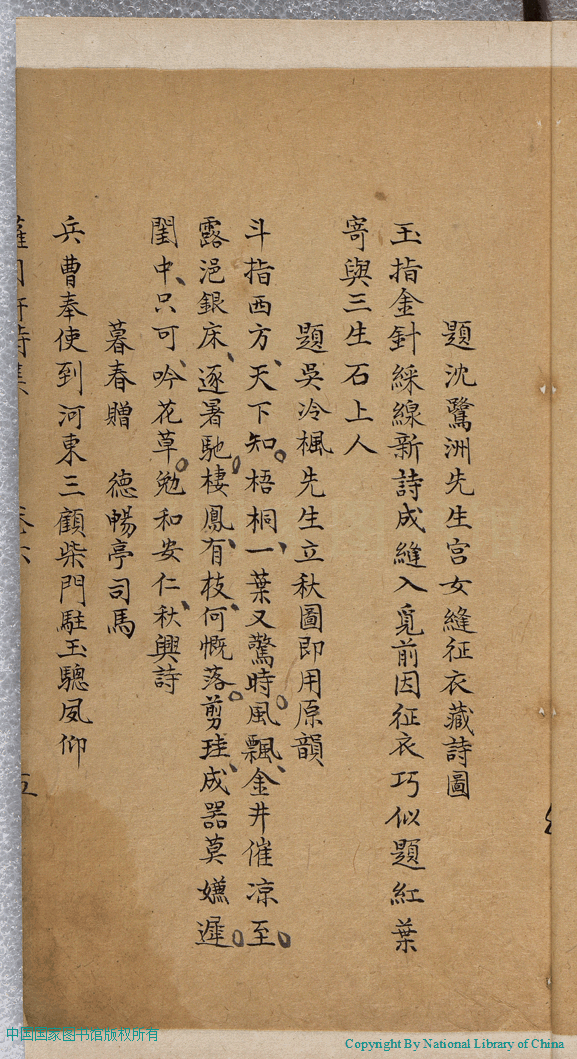 題沈鷺洲先生宫女縫征衣藏詩圖
玉指金針綵線新詩成縫入覓前因征衣巧似題紅葉
寄與三生石上人
題吳冷楓先生立秋圖即用原韻
斗指西方、天下知。梧桐一、葉又驚時。風飄、金井催凉至。
露浥銀床、逐暑馳。棲鳳、有枝、何慨落。剪珪、成器莫嫌遲。
閨中、只可、吟花草。勉和安仁、秋興詩
暮春贈　德暢亭司馬
兵曹奉使到河東三顧柴門駐玉驄夙仰
五
中国国家图书馆版权所有
Copyright By National Library of China